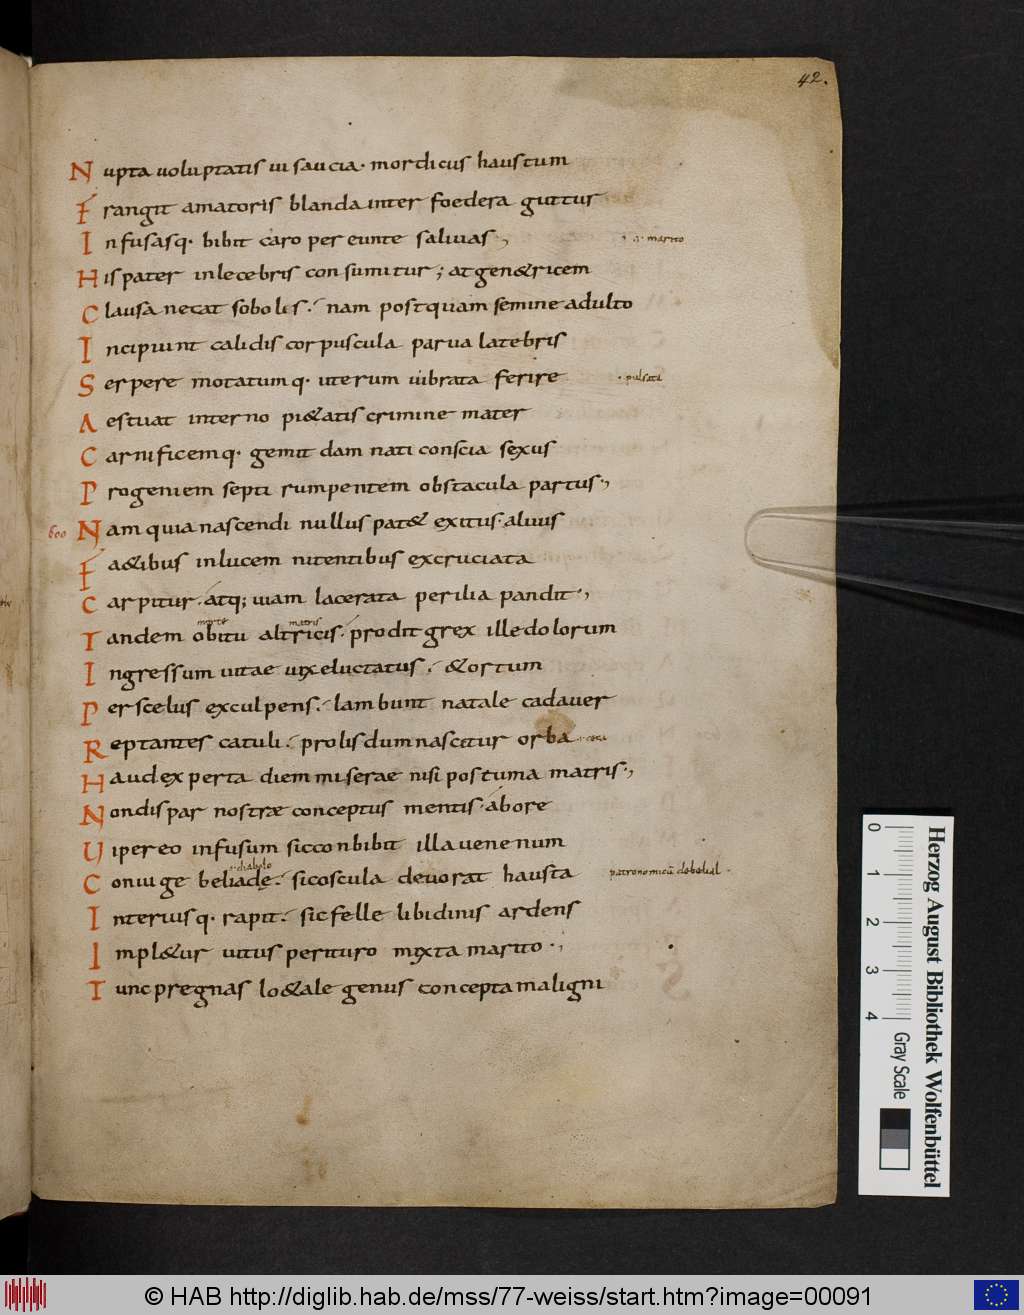 42.
Nupta uoluptatis ui saucia · mordicus haustum
Frangit amatoris blanda inter foedera guttur
Infusasq· bibit caro pereunte saliuas ·, · a · marito
His pater inlecebris consumitur ; at gen&ricem
Clausa necat sobolis . nam postquam semine adulto
Incipiunt calidis corpuscula parua latebris
Serpere motatumq· uterum uibrata ferire · pulsata
Aestuat interno pi&atis crimine mater
Carnificemq· gemit damnati conscia sexus
Progeniem septi rumpentem obstacula partus ·,
600 Nam quia nascendi nullus pat& exitus · aluus
Fa&ibus in lucem nitentibus excruciata
Carpitur . atq; uiam lacerata per ilia pandit ·,
morte matris
Tandem obitu altricis . prodit grex ille dolorum
Ingressum uitae uix eluctatus . & ortum
Per scelus exculpens . lambunt natale cadauer
Reptantes catuli . prolis dum nascitur orba
Haud experta diem miserae nisi postuma matris ·,
Non dispar nostrae conceptus mentis · ab ore
Uipereo infusum sic conbibit illa uenenum
diabolo
Coniuge beliade . sic oscula deuorat hausta patronomicū de belial ·
Interiusq· rapit . sic felle libidinis ardens
Impl&ur uitus perituro mixta marito ·,
Tunc pregnas lo&ale genus concepta maligni
0 1 2 3 4
Herzog August Bibliothek Wolfenbüttel
Gray Scale
© HAB http://diglib.hab.de/mss/77-weiss/start.htm?image=00091